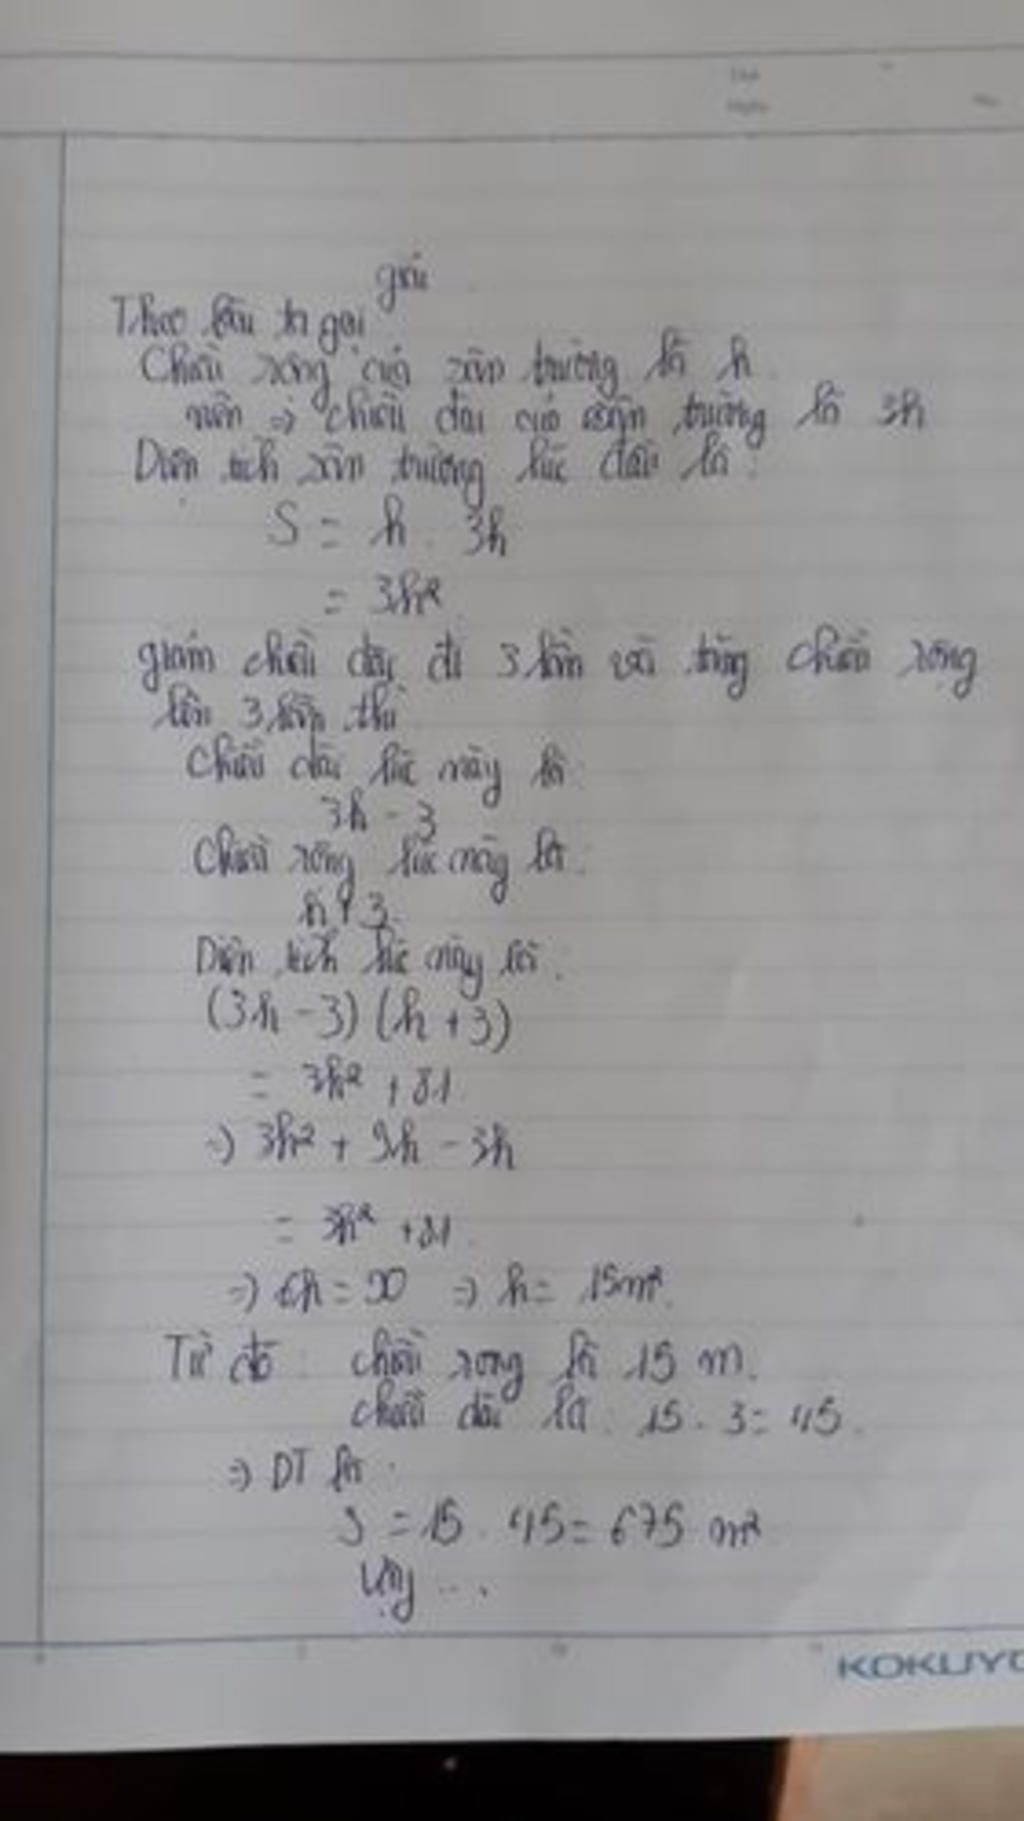 giải
Theo bài ta gọi
Chiều rộng của sân trường là h
nên => chiều dài của sân trường là 3h
Diện tích sân trường lúc đầu là :
S = h . 3h
= 3h²
giảm chiều dài đi 3 lần và tăng chiều rộng
lên 3 lần thì
Chiều dài lúc này là :
3h - 3
Chiều rộng lúc này là :
h + 3
Diện tích lúc này là :
(3h - 3) (h + 3)
= 3h² + 81
=> 3h² + 9h - 3h
= 3h² + 81
=> 6h = 90 => h = 15m².
Từ đó : chiều rộng là 15 m.
chiều dài là : 15 . 3 = 45.
=> DT là :
S = 15 . 45 = 675 m²
Vậy ...
KOKUYO